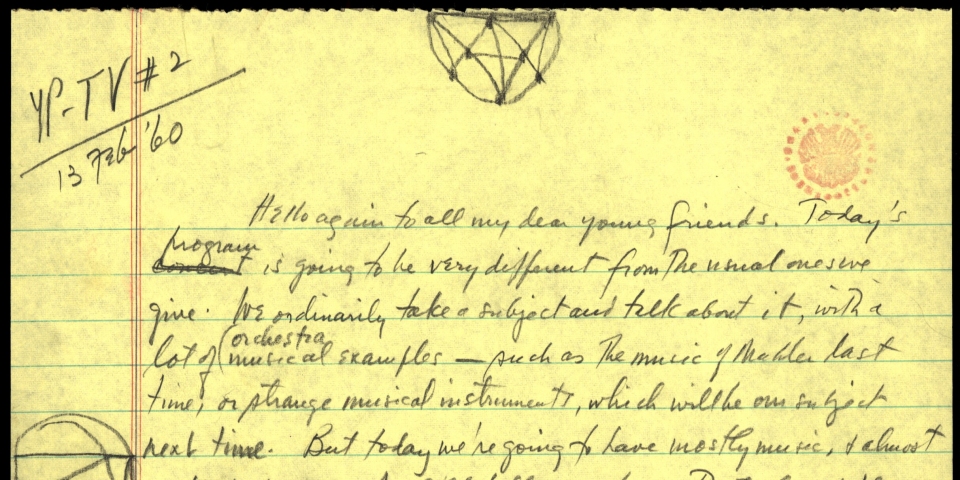 YP-TV #2
13 Feb '60
Hello again to all my dear young friends. Today's
program
concert is going to be very different from the usual ones we
give. We ordinarily take a subject and talk about it, with a
orchestra
lot of (musical examples — such as the music of Mahler last
time, or strange musical instruments, which will be our subject
next time. But today we're going to have mostly music, & almost